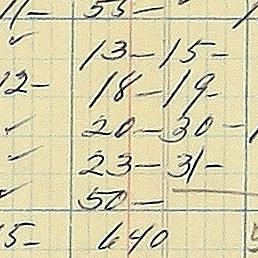 11- 55-
✓ 13- 15-
12- 18- 19-
✓ 20- 30-
✓ 23- 31-
✓ 50-
15- 640